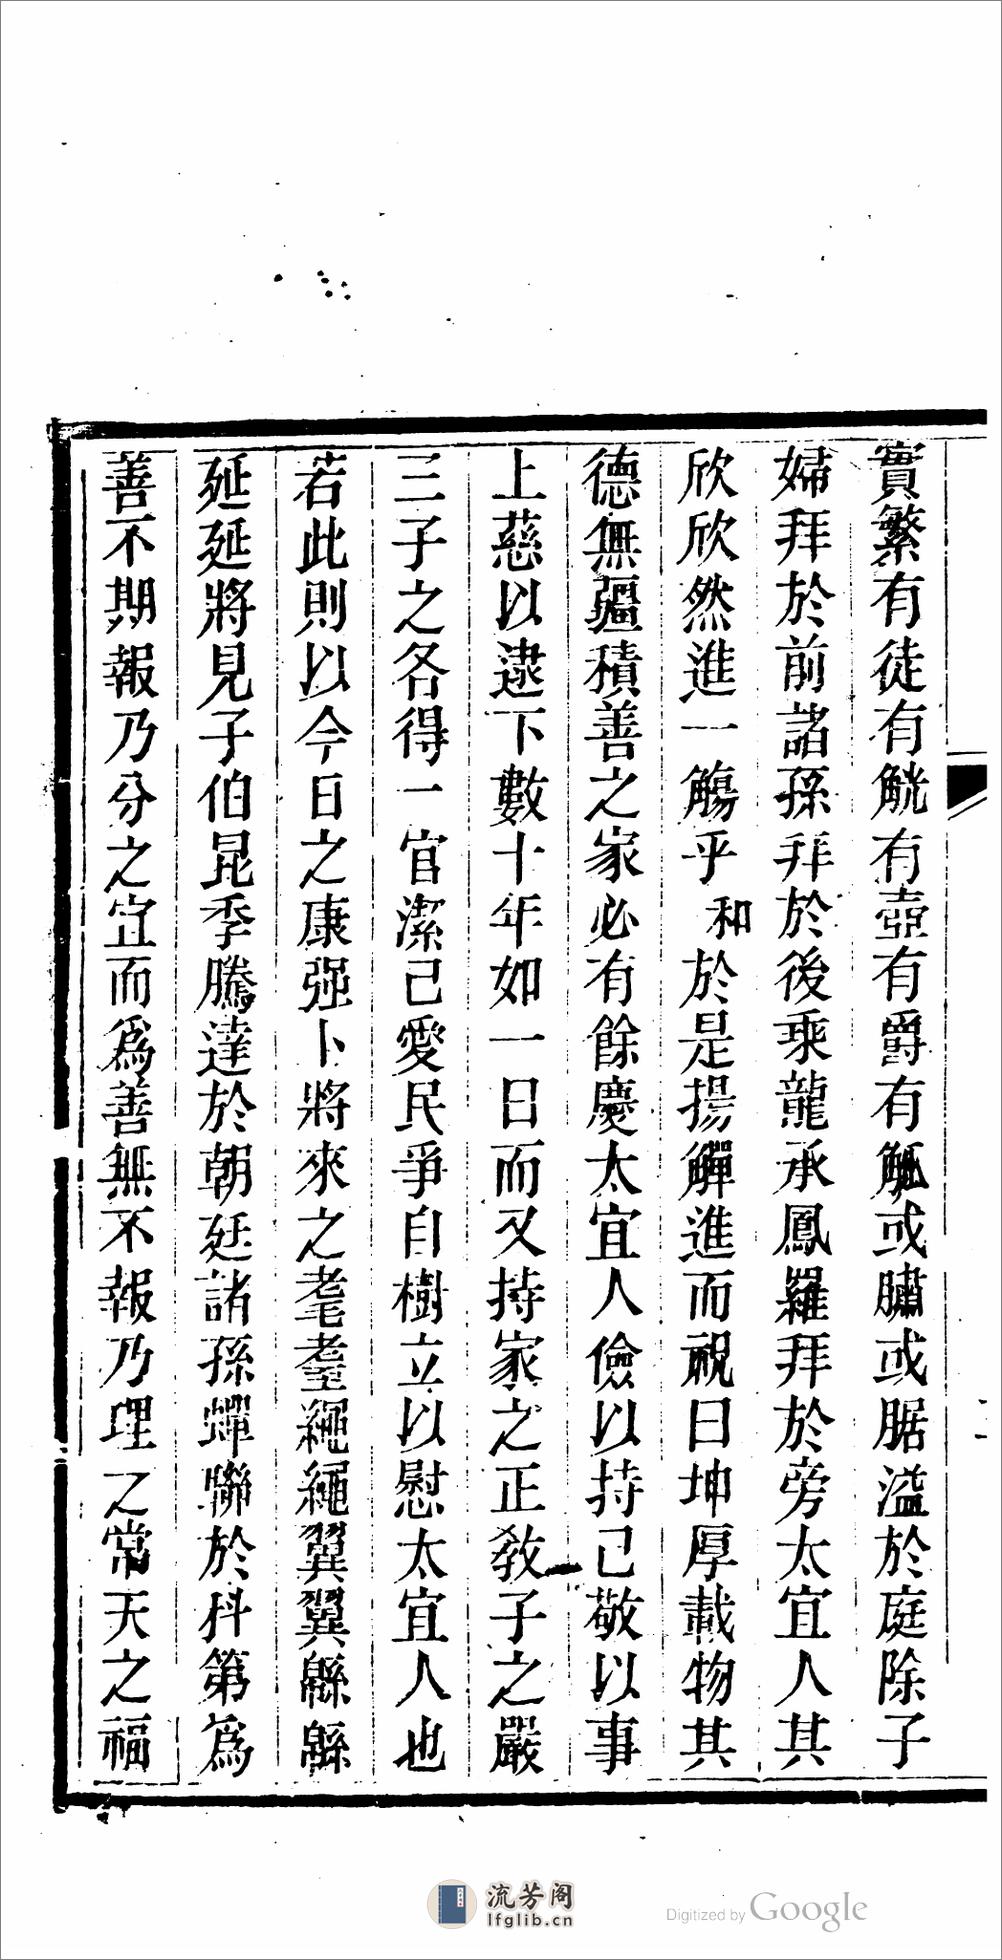 實繁有徒有觥有壺有爵有觚或臛或腒溢於庭除子
婦拜於前諸孫拜於後乘龍承鳳羅拜於旁太宜人其
欣欣然進一觴乎和於是揚觶進而祝曰坤厚載物其
德無疆積善之家必有餘慶太宜人儉以持己敬以事
上慈以逮下數十年如一日而又持家之正教子之嚴
三子之各得一官潔己愛民爭自樹立以慰太宜人也
若此則以今日之康强卜將來之耄耋繩繩翼翼緜緜
延延將見子伯昆季騰達於朝廷諸孫蟬聯於科第為
善不期報乃分之宜而為善無不報乃理之常天之福
流芳阁
lfglib.cn
Digitized by Google